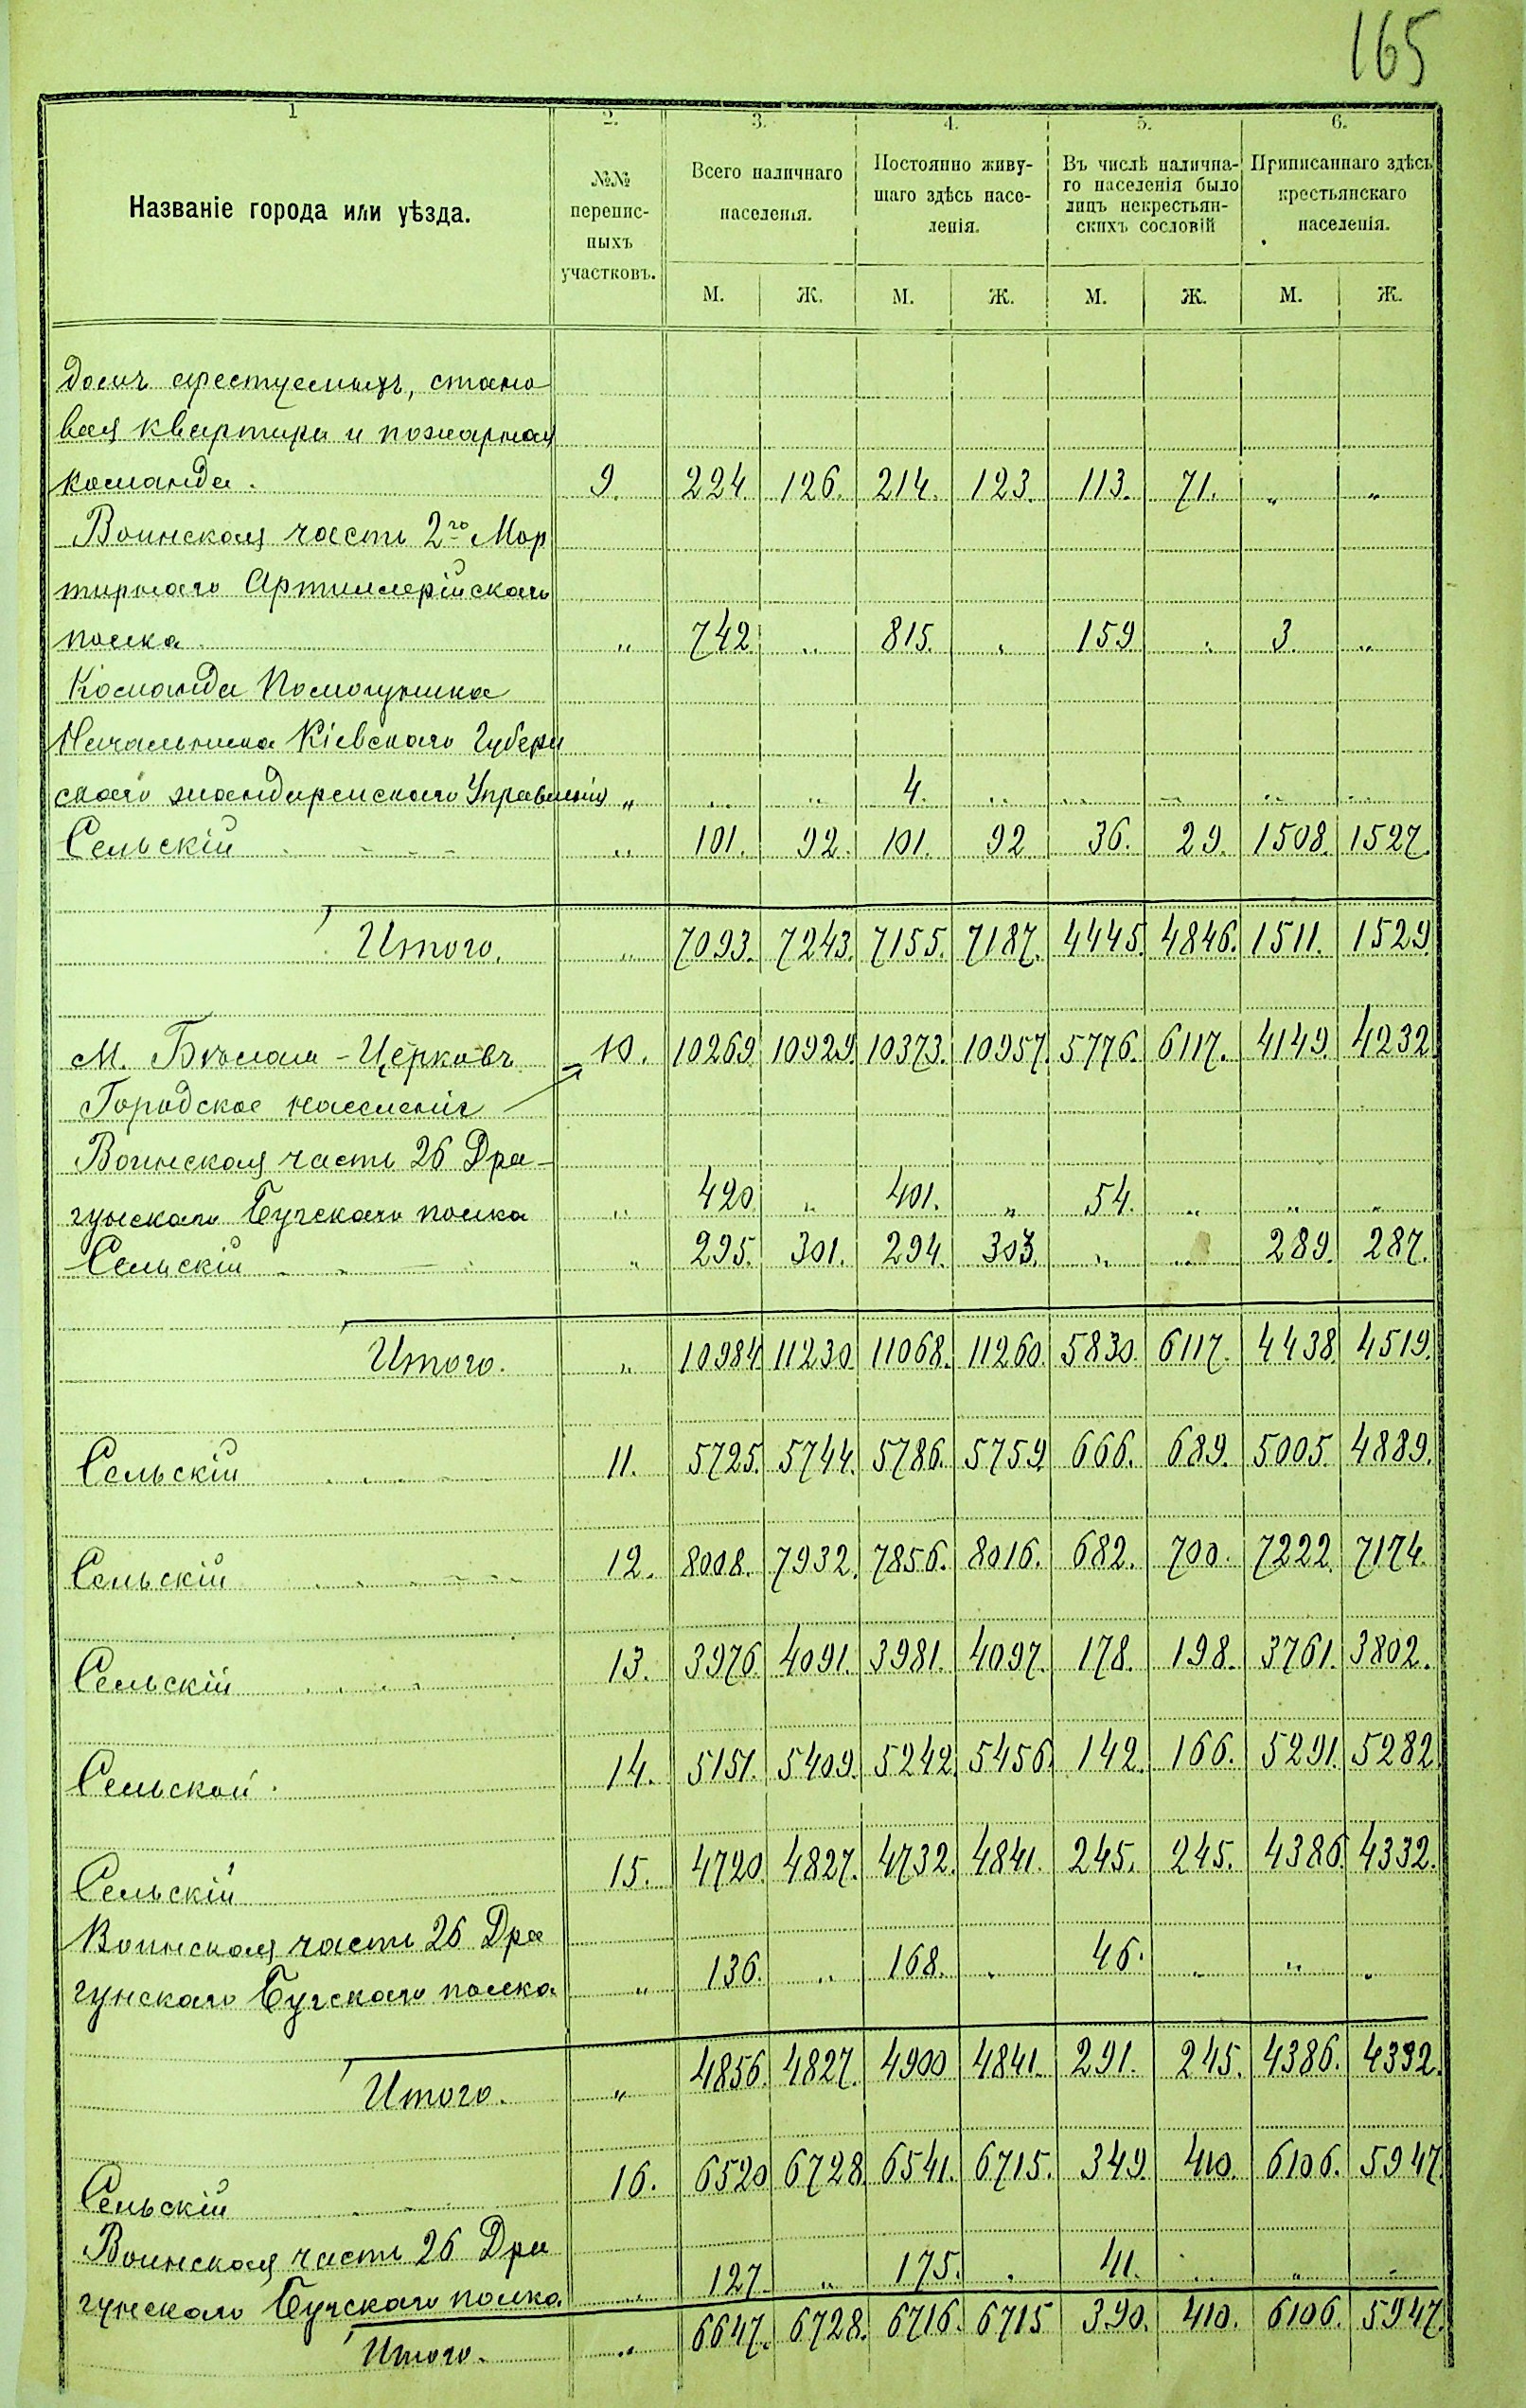 165
1 2. 3. 4. 5. 6.
Названіе города или уѣзда.
№№ перепис-
ныхъ
участковъ.
Всего наличнаго
населенія.
Постоянно живу-
щаго здѣсь насе-
ленія.
Въ числѣ налична-
го населенія было
лицъ некрестьян-
скихъ сословій
Приписаннаго здѣсь
крестьянскаго
населенія.
М. Ж. М. Ж. М. Ж. М. Ж.
Домъ арестуемыхъ, стано
вая квартира и пожарная
команда. 9. 224. 126. 214. 123. 113. 71. „ „
Воинская часть 2го Мор
тирнаго Артиллерійскаго
полка. „ 742 „ 815. „ 159 „ 3. „
Команда Помощника
Начальника Кіевскаго Губерн
скаго жандармскаго Управленія „ „ „ 4. „ „ „ „ „
Сельскій „ 101. 92. 101. 92 36. 29. 1508. 1527.
Итого. „ 7093. 7243. 7155. 7187. 4445. 4846. 1511. 1529.
М. Бѣлая-Церковь 10. 10269 10929 10373. 10957. 5776. 6117. 4149. 4232
Городское населеніе
Воинская часть 26 Дра-
гунскаго Бугскаго полка „ 420 „ 401. „ 54. „ „ „
Сельскій „ 295. 301. 294. 303. „ „ 289. 287.
Итого. „ 10984 11230 11068. 11260. 5830. 6117. 4438. 4519.
Сельскій 11. 5725. 5744. 5786. 5759. 666. 689. 5005. 4889.
Сельскій 12. 8008. 7932. 7856. 8016. 682. 700. 7222. 7174.
Сельскій 13. 3976. 4091. 3981. 4097. 178. 198. 3761. 3802.
Сельской. 14. 5151. 5409. 5242. 5456. 142. 166. 5291. 5282.
Сельскій 15. 4720. 4827. 4732. 4841. 245. 245. 4386. 4332.
Воинская часть 26 Дра
гунскаго Бугскаго полка „ 136. „ 168. „ 46. „ „ „
Итого. „ 4856. 4827. 4900 4841. 291. 245. 4386. 4332.
Сельскій 16. 6520 6728 6541. 6715. 349. 410. 6106. 5947.
Воинская часть 26 Дра
гунскаго Бугскаго полка „ 127. „ 175. „ 41. „ „ „
Итого. „ 6647. 6728. 6716. 6715 390. 410. 6106. 5947.